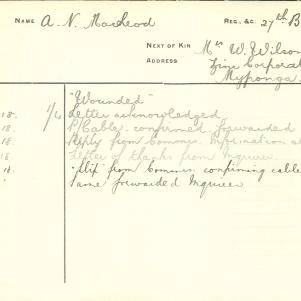 NAME A. N. Macleod REG. &C. 27th B
NEXT OF KIN Mrs W. Wilson
ADDRESS Zinc Corporat
Myponga.
"Wounded"
18. 1/6 Letter acknowledged
18. P/Cable confirmed forwarded
18. Reply from Commis. Information
18. Letter of thanks from Inquirer
18. "Slip" from Commis. confirming cable
Same forwarded Inquirer